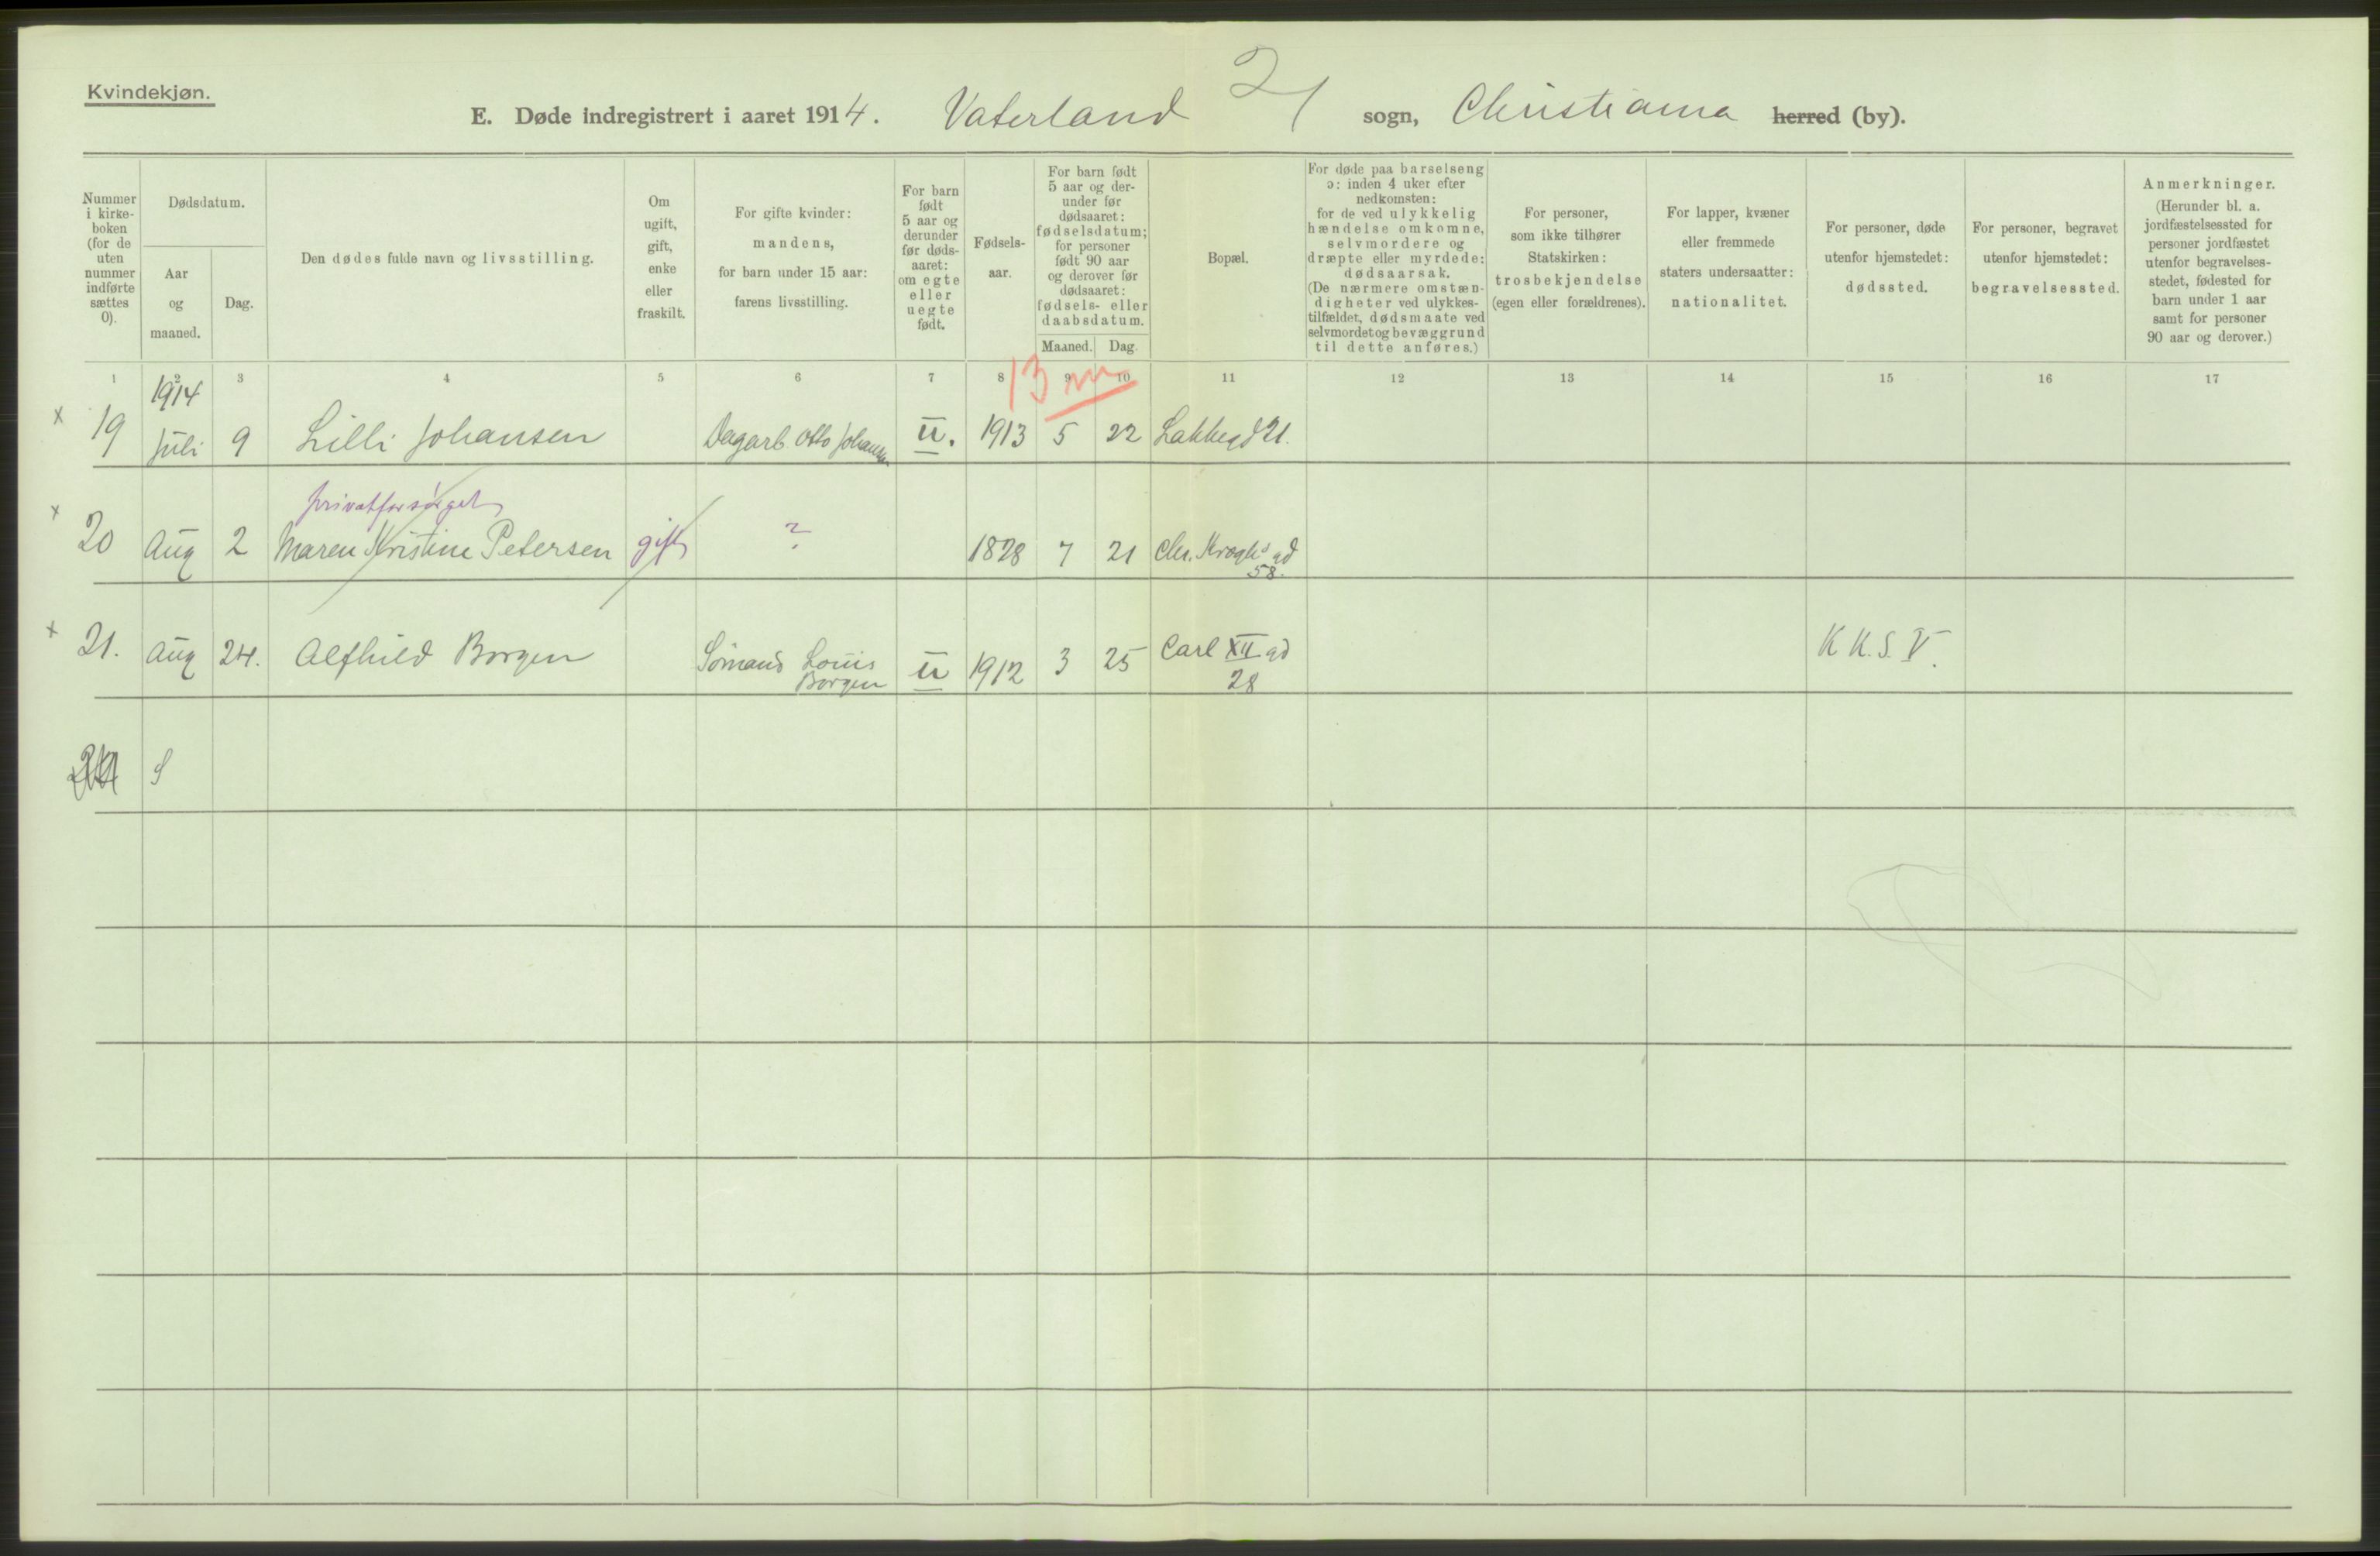 Kvindekjøn.
E. Døde indregistrert i aaret 1914. Vaterland 21 sogn, Christiania herred (by).
Nummer i kirke- boken (for de uten nummer indførte sættes 0).
Dødsdatum.
Aar og maaned.
Dag.
Den dødes fulde navn og livsstilling.
Om ugift, gift, enke eller fraskilt.
For gifte kvinder: mandens, for barn under 15 aar: farens livsstilling.
For barn født 5 aar og derunder før døds- aaret: om egte eller uegte født.
Fødsels- aar.
For barn født 5 aar og der- under før dødsaaret: fødselsdatum; for personer født 90 aar og derover før dødsaaret: fødsels- eller daabsdatum.
Maaned. Dag.
Bopæl.
For døde paa barselseng ɔ: inden 4 uker efter nedkomsten: for de ved ulykkelig hændelse omkomne, selvmordere og dræpte eller myrdede: dødsaarsak. (De nærmere omstæn- digheter ved ulykkes- tilfældet, dødsmaate ved selvmordet og bevæggrund til dette anføres.)
For personer, som ikke tilhører Statskirken: trosbekjendelse (egen eller forældrenes).
For lapper, kvæner eller fremmede staters undersaatter: nationalitet.
For personer, døde utenfor hjemstedet: dødssted.
For personer, begravet utenfor hjemstedet: begravelsessted.
Anmerkninger. (Herunder bl. a. jordfæstelsessted for personer jordfæstet utenfor begravelses- stedet, fødested for barn under 1 aar samt for personer 90 aar og derover.)
1 2 3 4 5 6 7 8 9 10 11 12 13 14 15 16 17
1914 13 m
x 19 Juli 9 Lilli Johansen Dagarb Otto Johansen u. 1913 5 22 Lakkegd 21.
privatforsørget
x 20 Aug 2 Maren Kristine Petersen gift ? 1828 7 21 Chr. Kroghs gd
58.
x 21. Aug 24. Alfhild Borgen Sömand Louis u 1912 3 25 Carl XII gd K K. S. V.
Borgen 28
S